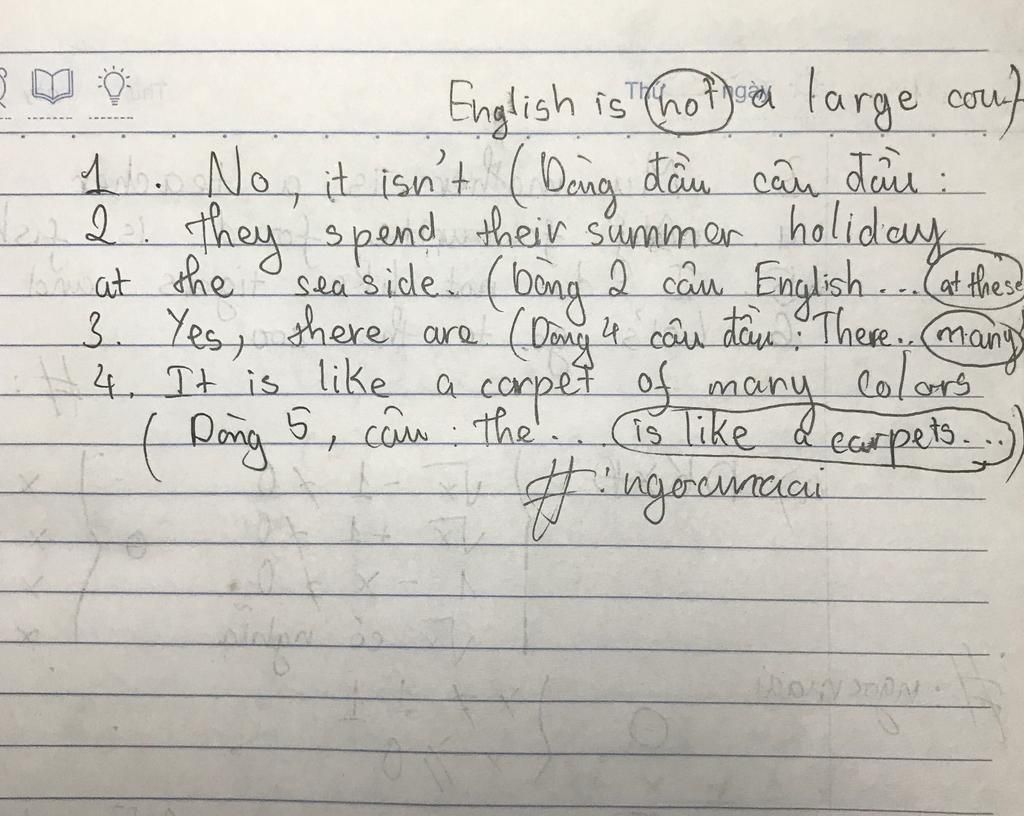 English is not a large cou
1. No, it isn't (Dòng đầu câu đầu:
2. They spend their summer holiday
at the seaside. (Dòng 2 câu English ... at these
3. Yes, there are (Dòng 4 câu đầu: There.. many)
4. It is like a carpet of many colors
(Dòng 5, câu: the ... is like a carpets...)
#: ngocmaai